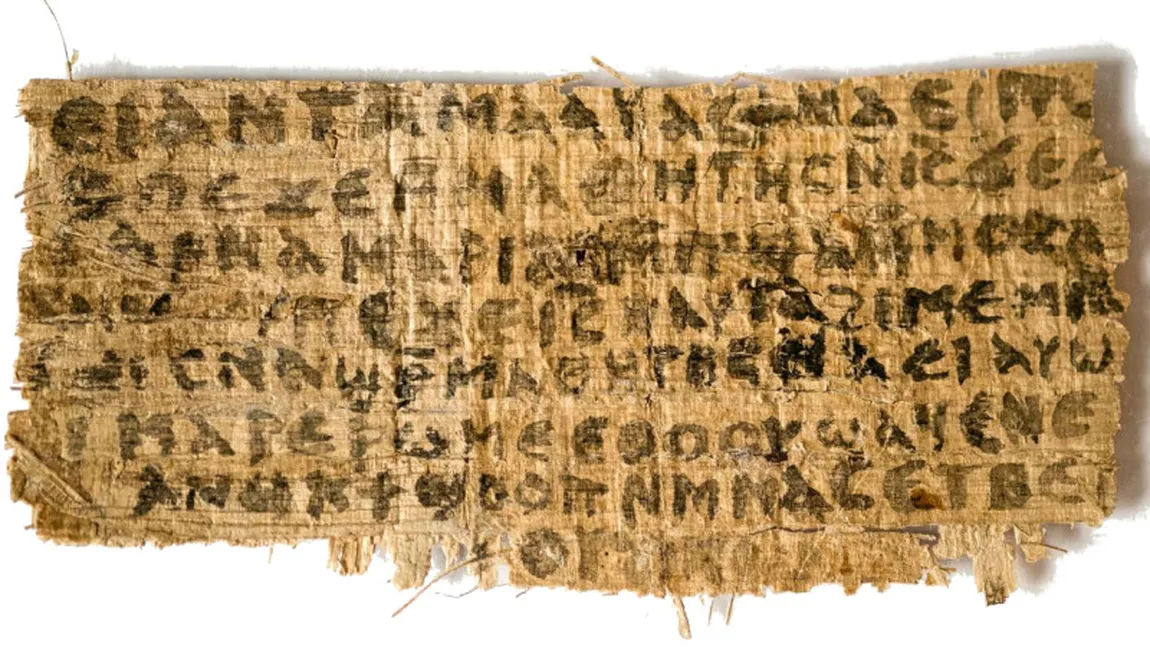 ⲉⲓ ⲁⲛ ⲧⲁⲙⲁⲁⲩ ⲁⲥϯ ⲛⲁⲉⲓ
ⲡⲉϫⲉ ⲙⲙⲁⲑⲏⲧⲏⲥ ⲛⲓ̅ⲥ̅ ϫⲉ ⲥ
ⲁⲣⲛⲁ ⲙⲁⲣⲓⲁⲙ ⲙⲡϣⲁ ⲙⲙⲟⲥ ⲁ
ⲡⲉϫⲉ ⲓ̅ⲥ̅ ⲛⲁⲩ ⲧⲁϩⲓⲙⲉ ⲙⲛ
ⲥⲛⲁϣⲣ̅ⲙⲁⲑⲏⲧⲏⲥ ⲛⲁⲉⲓ ⲁⲩⲱ
ⲓ ⲙⲁⲣⲉⲣⲱⲙⲉ ⲉⲑⲟⲟⲩ ϣⲁϥⲉ ⲛⲉ
ⲁⲛⲟⲕ ϯϣⲟⲟⲡ ⲛⲙⲙⲁⲥ ⲉⲧⲃⲉ